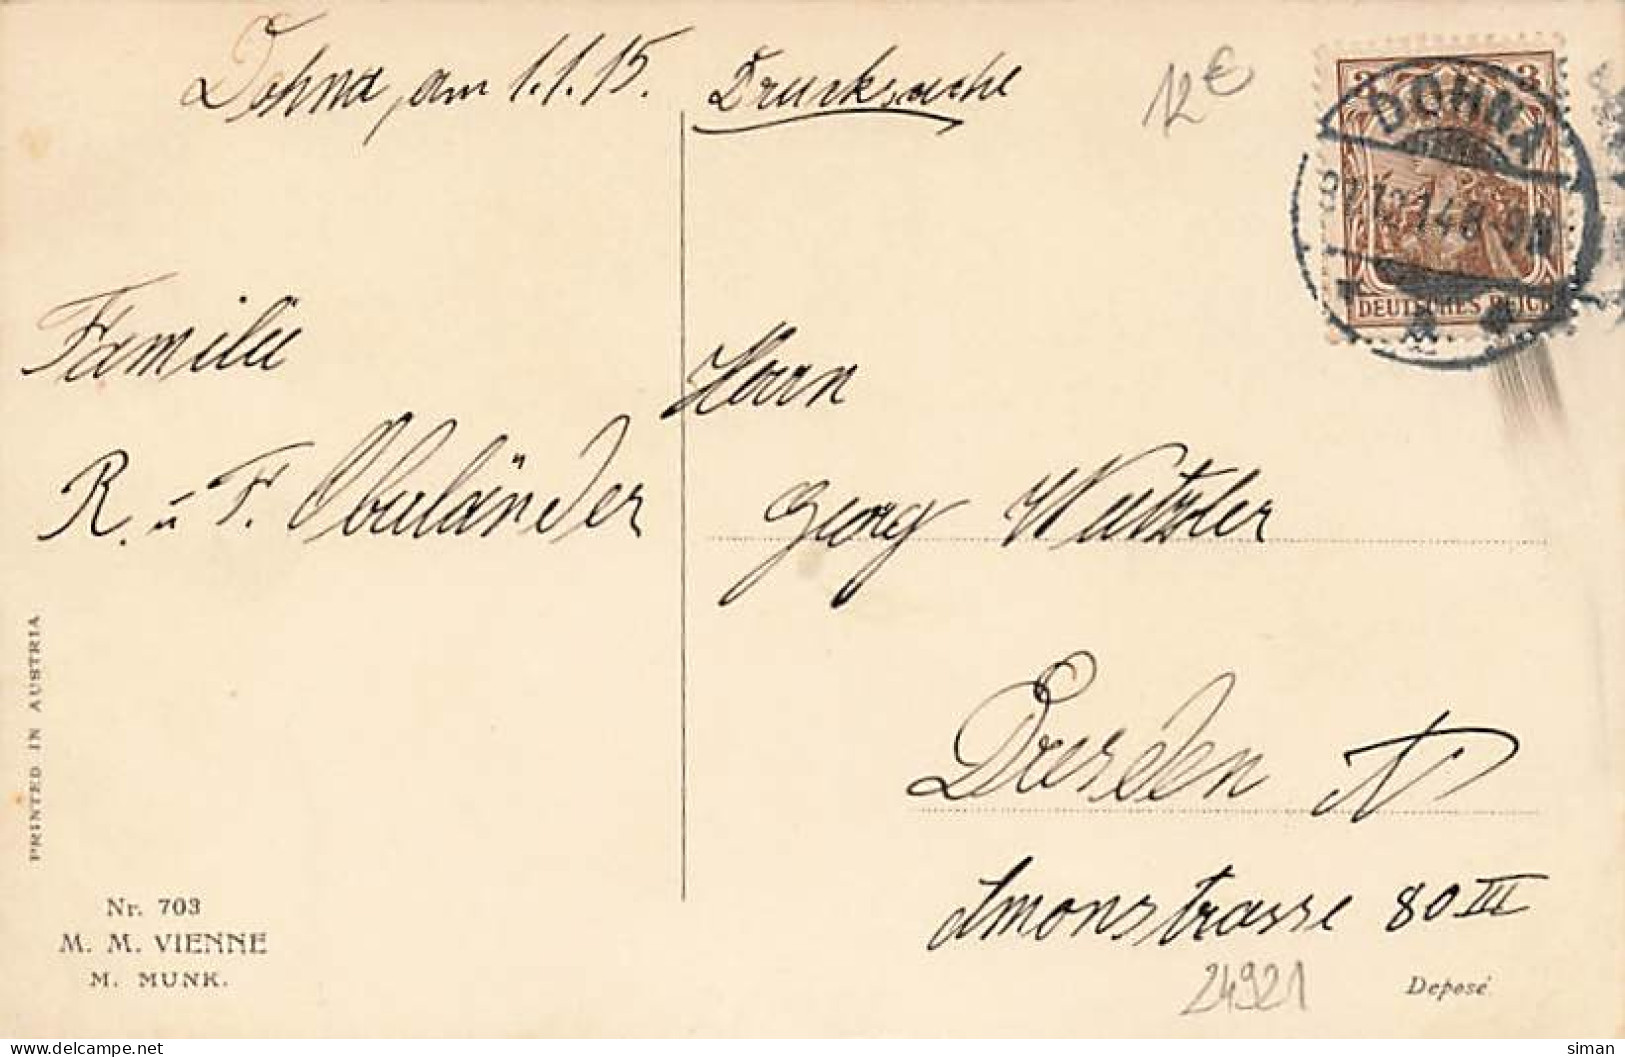 Dohna, am 1.1.15.
Drucksache
12€
3 3
DOHNA
31.12.14 8-9N
DEUTSCHES REICH
Familie
R. u. F. Oberländer
Herrn
Georg
Dresden N
Amonstrasse 80 III
24921
PRINTED IN AUSTRIA
Nr. 703
M. M. VIENNE
M. MUNK.
Deposé
delcampe.net
siman